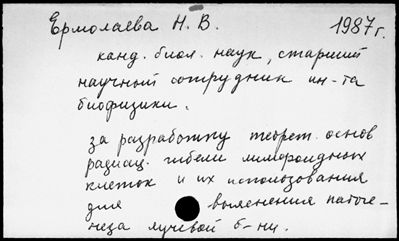 Ермолаева Н. В. 1987г.
канд. биол. наук, старший
научный сотрудник ин-та
биофизики.
за разработку теорет. основ
радиац. гибели лимфоидных
клеток и их использования
для выяснения патоге-
неза лучевой б-ни.